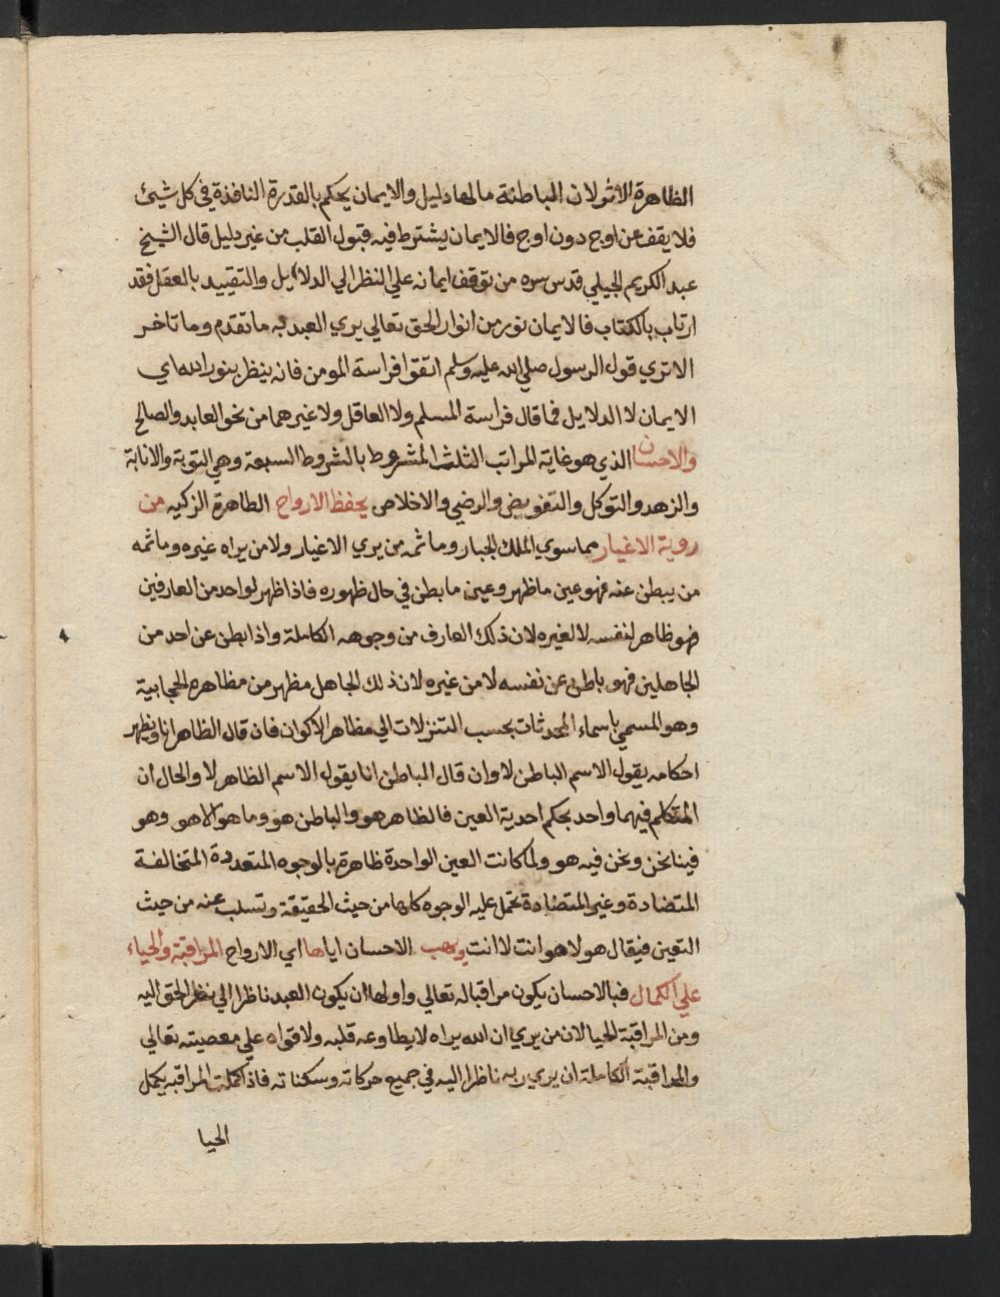 الظاهرة الاثولان الباطنة مالها دليل والايمان يحكم بالقدرة النافذة في كل شيئ
فلا يقف عن اوج دون اوج فالايمان يشترط فيه قبول القلب من غير دليل قال الشيخ
عبد الكريم الجيلي قدس سره من توقف ايمانه علي النظر الي الدلايل والتقييد بالعقل فقد
ارتاب بالكتاب فالايمان نور من انوار الحق تعالي يري العبد به ما تقدم وما تاخر
الا تري قول الرسول صلي الله عليه وسلم اتقوا فراسة المومن فانه ينظر بنور الله اي
الايمان لا الدلايل فما قال فراسة المسلم ولا العاقل ولا غيرهما من نحو العابد والصالح
والاحسان الذي هو غاية المراتب الثلث المشروط بالشروط السبعة وهي التوبة والانابة
والزهد والتوكل والتفويض والرضي والاخلاص يحفظ الارواح الطاهرة الزكيه من
روية الاغيار مما سوي الملك الجبار وما ثمه من يري الاغيار ولا من يراه غيره وما ثمه
من يبطن عنه فهو عين ما ظهر وعين ما بطن في حال ظهوره فاذا ظهر لواحد من العارفين
فهو ظاهر لنفسه لا لغيره لان ذلك العارف من وجوهه الكاملة واذا بطن عن احد من
الجاهلين فهو باطن عن نفسه لا من غيره لان ذلك الجاهل مظهر من مظاهره الحجابية
وهو المسمي باسماء المحدثات بحسب التنزلات الي مظاهر الاكوان فان قال الظاهر انا ويظهر
احكامه يقول الاسم الباطن لا وان قال الباطن انا يقول الاسم الظاهر لا والحال ان
المتكلم فيهما واحد بحكم احدية العين فالظاهر هو والباطن هو وما هو الا هو وهو
فينا نحن ونحن فيه هو ولما كانت العين الواحدة ظاهرة بالوجوه المتعددة المتخالفة
المتضادة وغير المتضادة تحمل عليه الوجوه كلها من حيث الحقيقة وتسلب عنه من حيث
التعين فيقال هو لا هو انت لا انت ويهب الاحسان اياها اي الارواح المراقبة والحياء
علي الكمال فبالاحسان يكون مراقبا له تعالي واولها ان يكون العبد ناظرا الي نظر الحق اليه
ومن المراقبة الحيا لان من يري ان الله يراه لا يطاوعه قلبه ولا قواه علي معصيته تعالي
والمراقبة الكاملة ان يري ربه ناظرا اليه في جميع حركاته وسكناته فاذا كملت المراقبه يكمل
الحيا